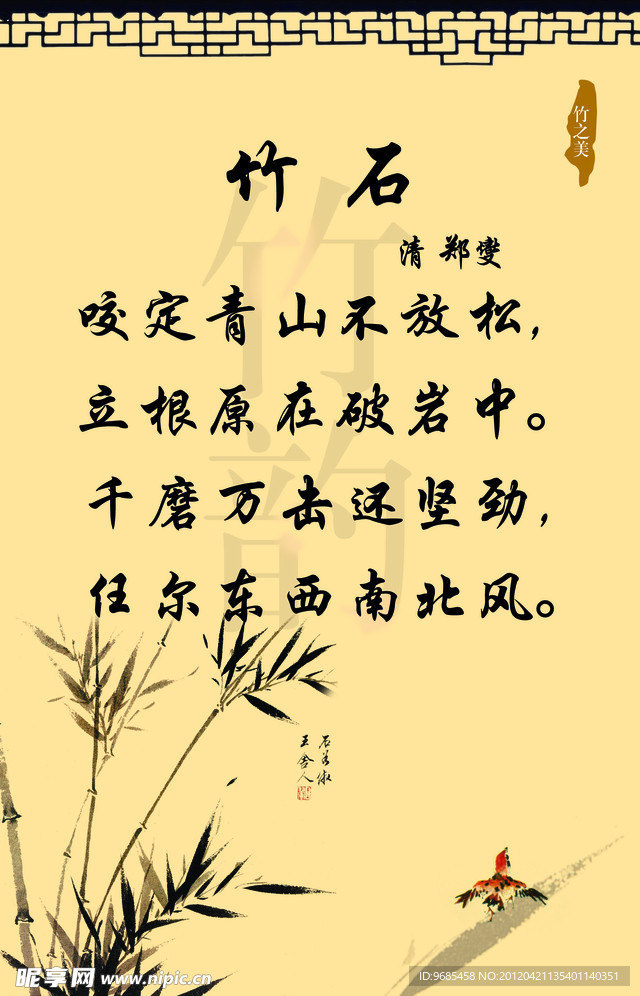 竹之美
竹石
清 郑燮
竹韵
咬定青山不放松,
立根原在破岩中。
千磨万击还坚劲,
任尔东西南北风。
王舍人
昵享网 www.nipic.cn
ID:9685458 NO:20120421135401140351